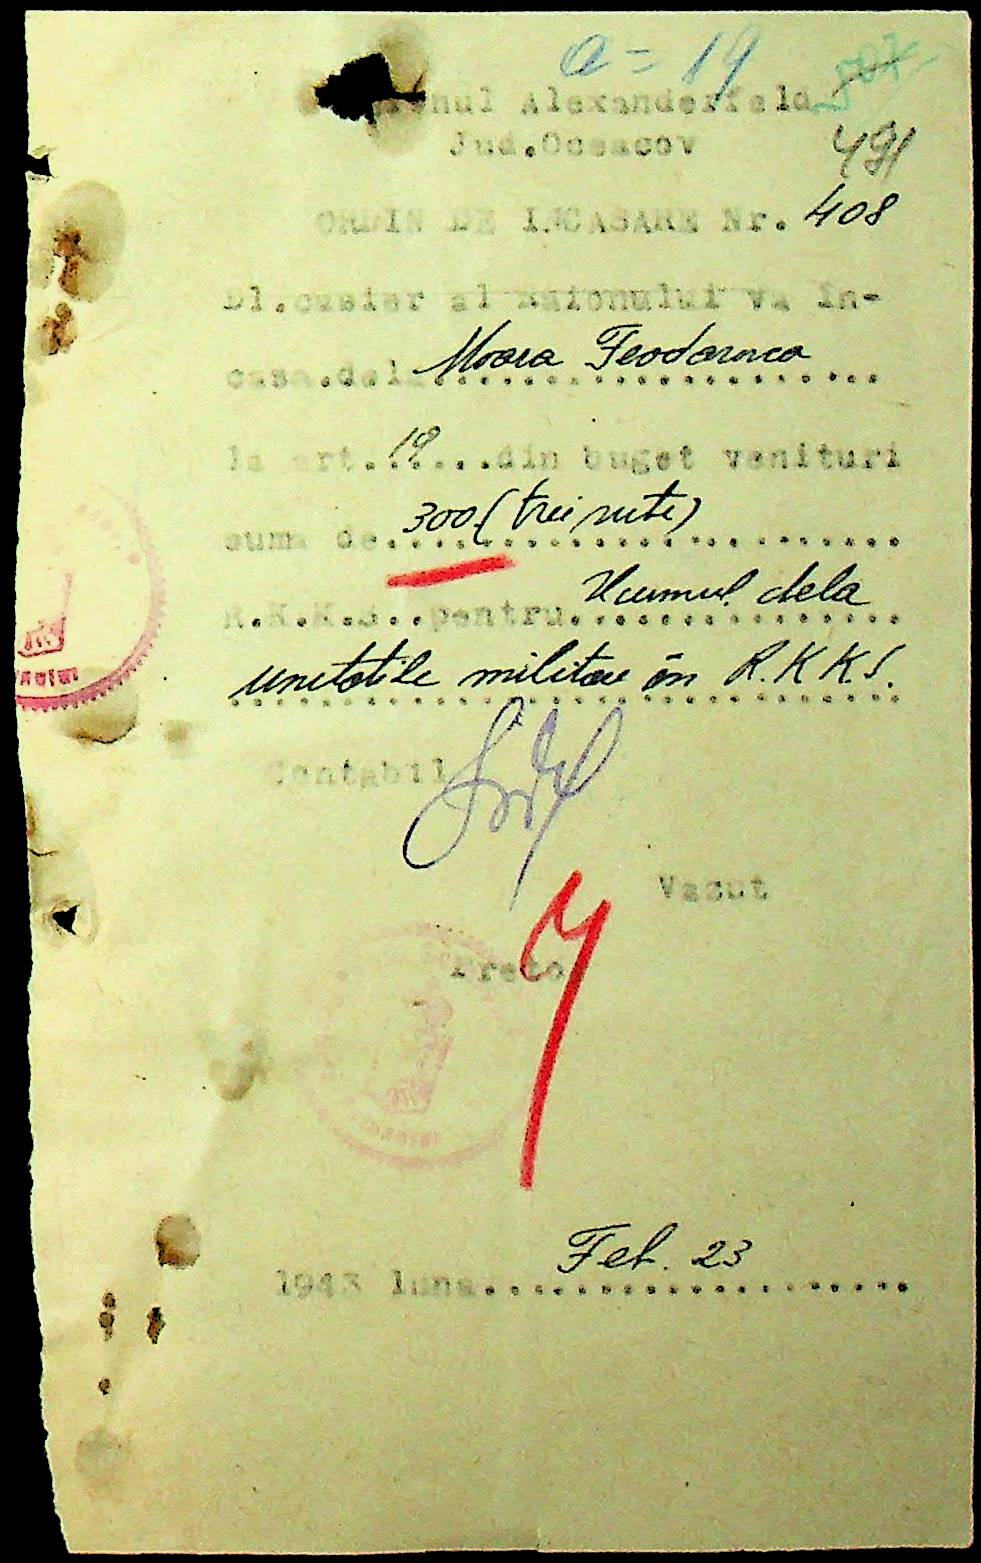 a = 19
507
Alexanderfeld
491
Jud.Oceacov
ORDIN DE INCASARE Nr. 408
Dl.casier al Raionului va în-
casa.dela Moara
la art. 19 din buget venituri
suma de 300 (trei sute)
R.K.K.S..pentru dela
unitatile militare în R.K.K.S.
Contabil
Vazut
Pretor
1943 luna Feb. 23